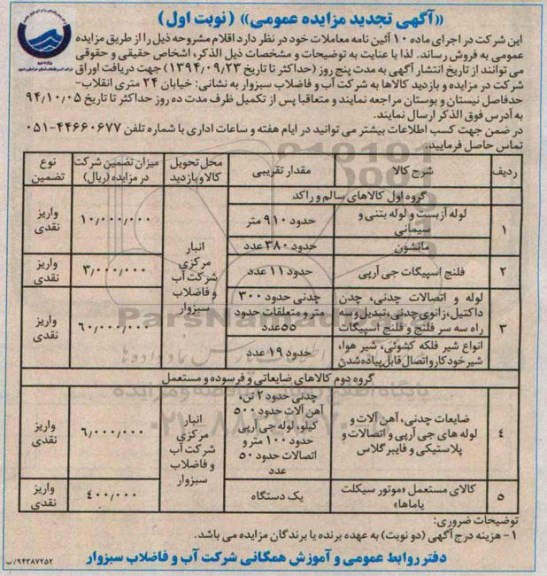 «آگهی تجدید مزایده عمومی» (نوبت اول)
این شرکت در اجرای ماده ۱۰ آئین نامه معاملات خود در نظر دارد اقلام مشروحه ذیل را از طریق مزایده
عمومی به فروش رساند. لذا با عنایت به توضیحات و مشخصات ذیل الذکر، اشخاص حقیقی و حقوقی
می توانند از تاریخ انتشار آگهی به مدت پنج روز (حداکثر تا تاریخ ۱۳۹۴/۰۹/۲۳) جهت دریافت اوراق
شرکت در مزایده و بازدید کالاها به شرکت آب و فاضلاب سبزوار به نشانی: خیابان ۲۴ متری انقلاب-
حدفاصل نیستان و بوستان مراجعه نمایند و متعاقبا پس از تکمیل ظرف مدت ده روز حداکثر تا تاریخ ۹۴/۱۰/۰۵
به آدرس فوق الذکر ارسال نمایند.
در ضمن جهت کسب اطلاعات بیشتر می توانید در ایام هفته و ساعات اداری با شماره تلفن ۴۴۶۶۰۶۷۷-۰۵۱
تماس حاصل فرمایید.
ردیف شرح کالا مقدار تقریبی محل تحویل کالا و بازدید میزان تضمین شرکت در مزایده (ریال) نوع تضمین
گروه اول کالاهای سالم و راکد
۱ لوله آزبست و لوله بتنی و سیمانی حدود ۹۱۰ متر ۱۰/۰۰۰/۰۰۰ واریز نقدی
مانشون حدود ۳۸۰ عدد
انبار مرکزی شرکت آب و فاضلاب سبزوار
۲ فلنج اسپیگات جی آرپی حدود ۱۱ عدد ۳/۰۰۰/۰۰۰ واریز نقدی
۳ لوله و اتصالات چدنی، چدن داکتیل، زانوی چدنی، تبدیل و سه راه سه سر فلنج و فلنج اسپیگات چدنی حدود ۳۰۰ متر و متعلقات حدود ۵۵ عدد ۶۰/۰۰۰/۰۰۰ واریز نقدی
انواع شیر فلکه کشوئی، شیر هوا، شیر خودکار و اتصال قابل پیاده شدن حدود ۱۹ عدد
گروه دوم کالاهای ضایعاتی و فرسوده و مستعمل
۴ ضایعات چدنی، آهن آلات و لوله های جی آرپی و اتصالات و پلاستیکی و فایبرگلاس چدنی حدود ۲ تن، آهن آلات حدود ۵۰۰ کیلو، لوله جی آرپی حدود ۱۰۰ متر و اتصالات حدود ۵۰ عدد انبار مرکزی شرکت آب و فاضلاب سبزوار ۶/۰۰۰/۰۰۰ واریز نقدی
۵ کالای مستعمل «موتور سیکلت یاماها» یک دستگاه ۴۰۰/۰۰۰ واریز نقدی
توضیحات ضروری:
۱- هزینه درج آگهی (دو نوبت) به عهده برنده یا برندگان مزایده می باشد.
دفتر روابط عمومی و آموزش همگانی شرکت آب و فاضلاب سبزوار
۹۴۳۸۷۲۵۲/ب